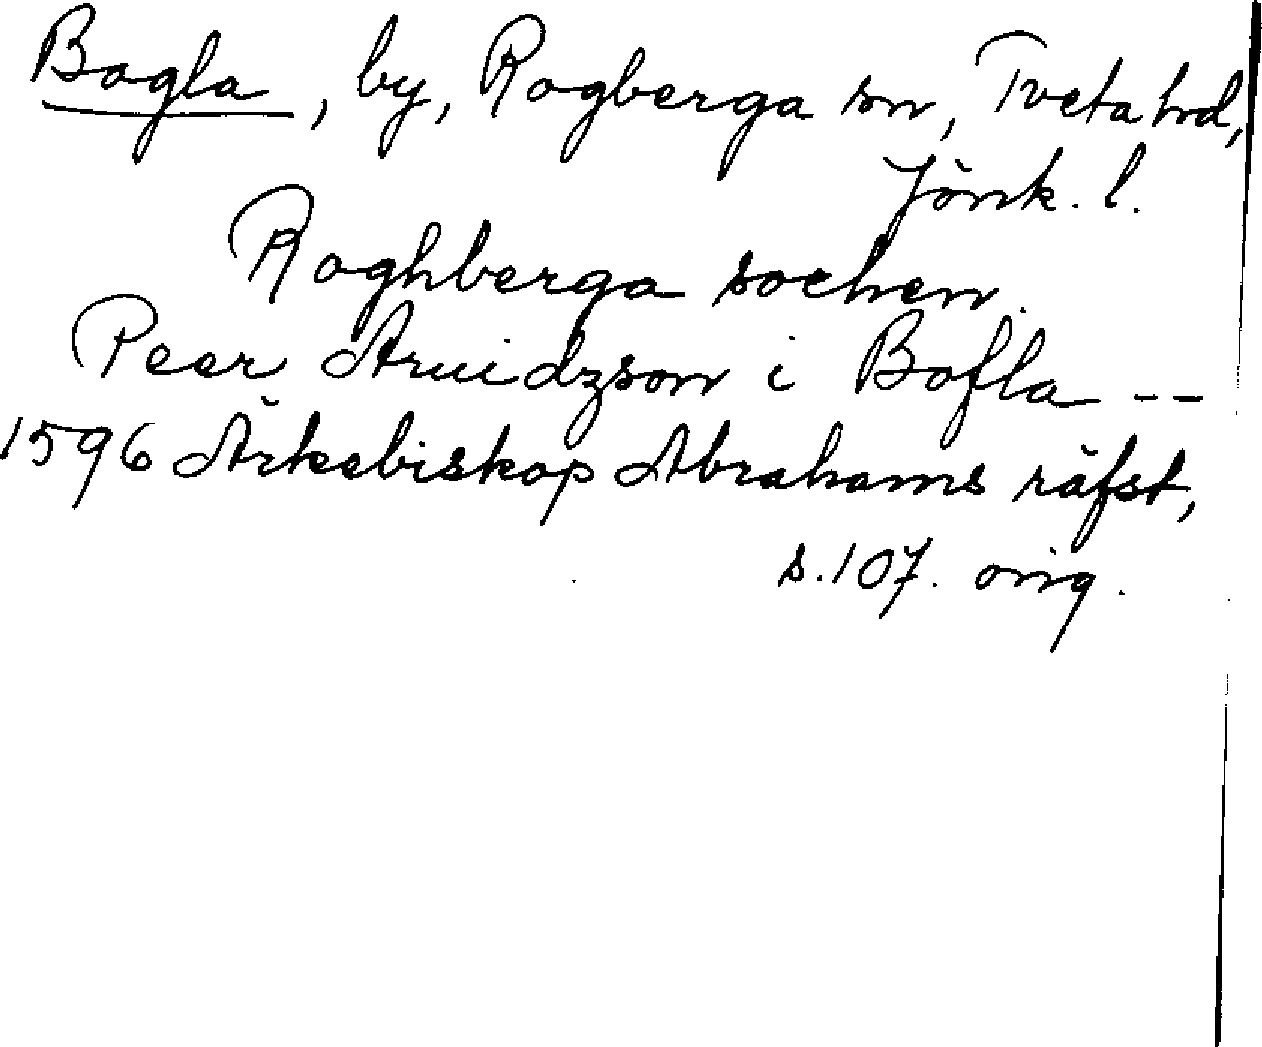 Bogla, by, Rogberga sn, Tveta hrd,
Jönk. l.
Roghberga sochen.
Peer Aruidzson i Bofla --
1596 Ärkebiskop Abrahams räfst,
s. 107. orig.